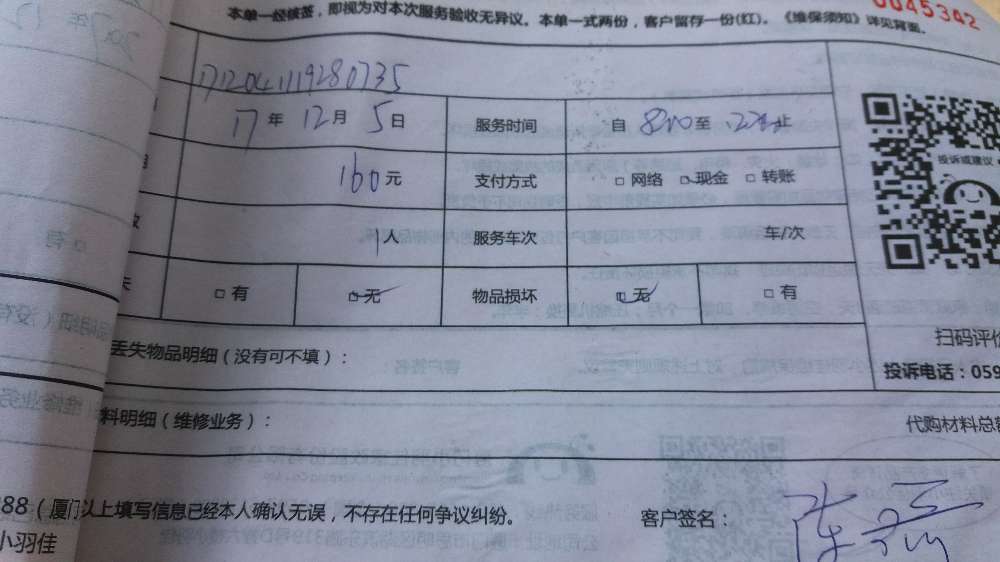 0045342
本单一经核签，即视为对本次服务验收无异议。本单一式两份，客户留存一份(红)。《维保须知》详见背面。
17120411119280735
17年12月5日 服务时间 自 800至 止
160元 支付方式 □ 网络 □ 现金 □ 转账
投诉或建议
1人 服务车次 车/次
□ 有 □ 无 物品损坏 □ 无 □ 有
丢失物品明细（没有可不填）：
扫码评价
投诉电话：059
料明细（维修业务）：
代购材料总额
88（厦门 以上填写信息已经本人确认无误，不存在任何争议纠纷。
客户签名：
小羽佳